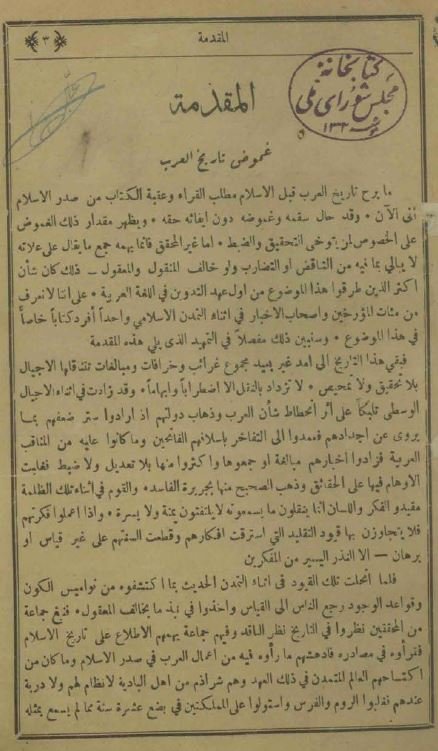 المقدمة
﴿ ٣ ﴾
كتابخانهٔ
مجلس شورای ملی
المقدمة
غموض تاريخ العرب
ما برح تاريخ العرب قبل الاسلام مطلب القراء وعقبة الكتاب من صدر الاسلام
الى الآن ٠ وقد حال سقمه وغموضه دون ايفائه حقه ٠ ويظهر مقدار ذلك الغموض
على الخصوص لمن يتوخى التحقيق والضبط ٠ اما غير المحقق فانما يهمه جمع ما يقال على علاته
لا يبالي بما فيه من التناقض او التضارب ولو خالف المنقول والمعقول ــ ذلك كان شأن
اكثر الذين طرقوا هذا الموضوع من اول عهد التدوين في اللغة العربية ٠ على اننا لا نعرف
من مئات المؤرخين واصحاب الاخبار في اثناء التمدن الاسلامي واحداً أفرد كتاباً خاصاً
في هذا الموضوع ٠ وسنبين ذلك مفصلاً في التمهيد الذي يلي هذه المقدمة
فبقي هذا التاريخ الى امد غير بعيد مجموع غرائب وخرافات ومبالغات تتناقلها الاجيال
بلا تحقيق ولا تمحيص ٠ لا تزداد بالنقل الا اضطراباً وابهاماً ٠ وقد زادت في اثناء الاجيال
الوسطى على أثر انحطاط شأن العرب وذهاب دولتهم اذ ارادوا ستر ضعفهم بما
يروى عن اجدادهم فعمدوا الى التفاخر باسلافهم الفاتحين وما كانوا عليه من المناقب
العربية فزادوا اخبارهم مبالغة او جمعوها واكثروا منها بلا تعديل ولا ضبط فغلبت
الاوهام فيها على الحقائق وذهب الصحيح منها بجريرة الفاسد ٠ والقوم في اثناء تلك الظلمة
مقيدو الفكر واللسان انما ينقلون ما يسمعونه لا يلتفتون يمنة ولا يسرة ٠ واذا اعملوا فكرتهم
فلا يتجاوزن بها قيود التقليد التي استرقت افكارهم وقطعت السنتهم على غير قياس او
برهان — الا النذر اليسير من المفكرين
فلما انحلت تلك القيود في اثناء التمدن الحديث بما اكتشفوه من نواميس الكون
وقواعد الوجود رجع الناس الى القياس واخذوا في نبذ ما يخالف المعقول ٠ فنبغ جماعة
من المحققين نظروا في التاريخ نظر الناقد وفيهم جماعة يهمهم الاطلاع على تاريخ الاسلام
فقرأوه في مصادره فادهشهم ما رأوه فيه من اعمال العرب في صدر الاسلام وما كان من
اكتساحهم العالم المتمدن في ذلك العهد وهم شراذم من اهل البادية لا نظام لهم ولا دربة
عندهم فغلبوا الروم والفرس واستولوا على المملكتين في بضع عشرة سنة مما لم يسمع بمثله